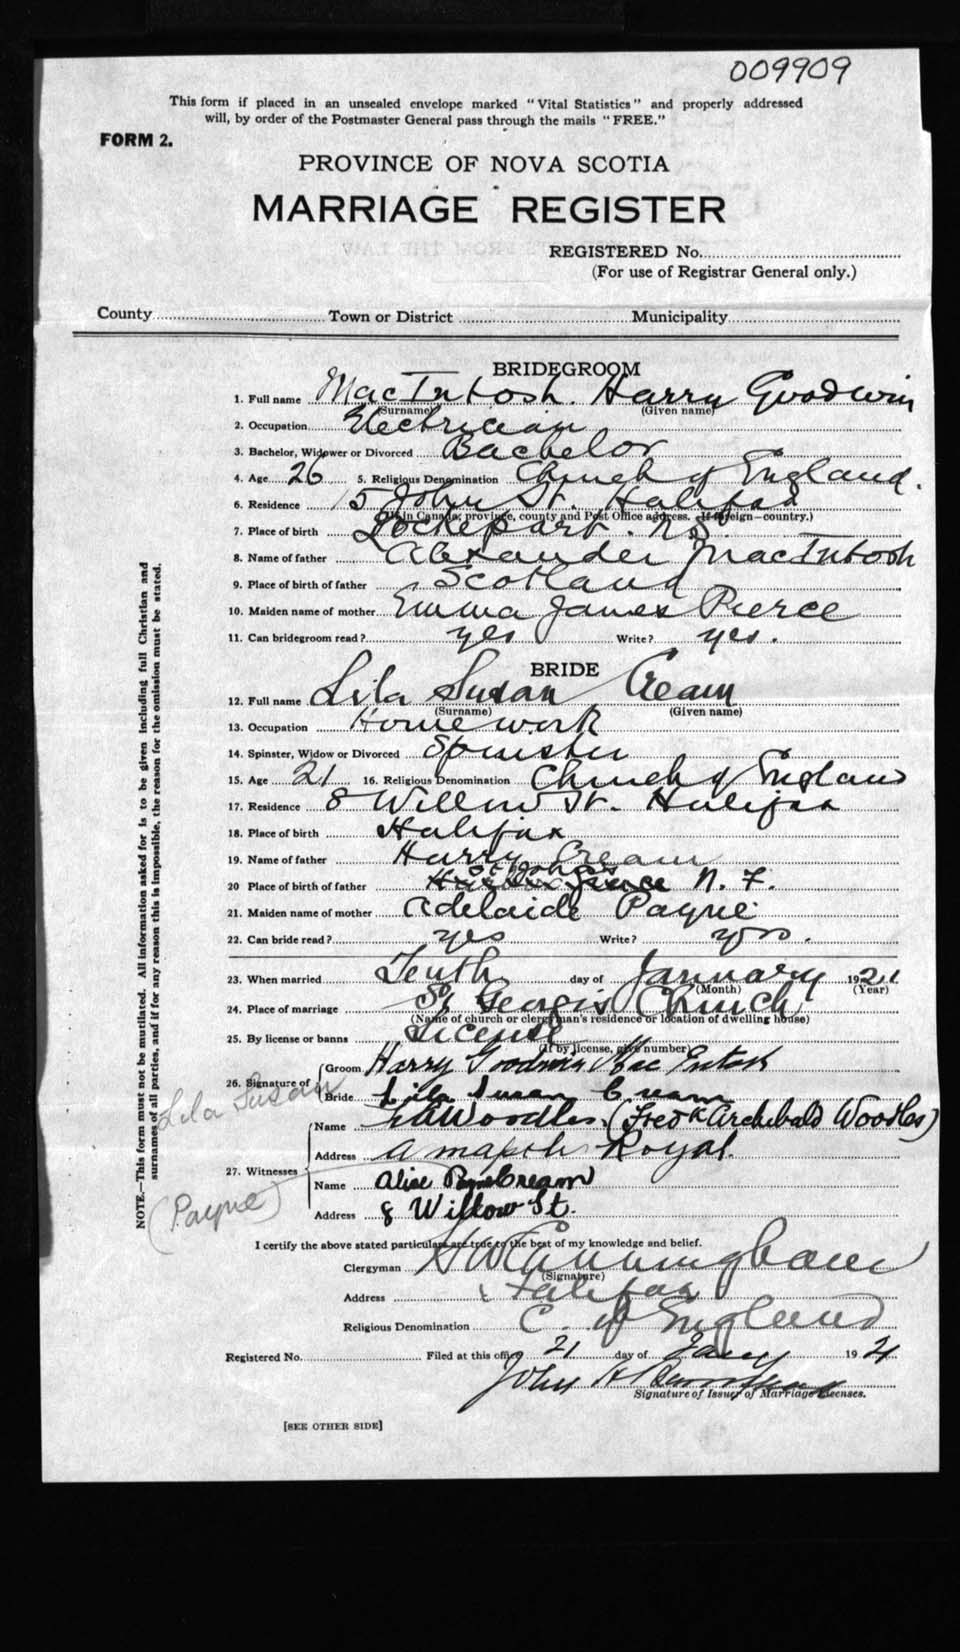 009909
This form if placed in an unsealed envelope marked "Vital Statistics" and properly addressed
will, by order of the Postmaster General pass through the mails "FREE."
FORM 2.
PROVINCE OF NOVA SCOTIA
MARRIAGE REGISTER
REGISTERED No.
(For use of Registrar General only.)
County Town or District Municipality
BRIDEGROOM
1. Full name MacIntosh. Harry Goodwin
(Surname) (Given name)
2. Occupation Electrician
3. Bachelor, Widower or Divorced Bachelor
4. Age 26 5. Religious Denomination Church of England.
6. Residence 15 John St. Halifax
(If in Canada; province, county and Post Office address. If foreign—country.)
7. Place of birth Lockeport. N.S.
8. Name of father Alexander MacIntosh
9. Place of birth of father Scotland
10. Maiden name of mother Emma James Pierce
11. Can bridegroom read? yes Write? yes.
BRIDE
12. Full name Lila Susan Cream
(Surname) (Given name)
13. Occupation Home work
14. Spinster, Widow or Divorced Spinster
15. Age 21 16. Religious Denomination Church of England
17. Residence 8 Willow St. Halifax
18. Place of birth Halifax
19. Name of father Harry Cream
St Johns
20 Place of birth of father N. F.
21. Maiden name of mother Adelaide Payne
22. Can bride read? yes Write? yes.
23. When married Tenth day of January 1921
(Month) (Year)
24. Place of marriage St Georges Church
(Name of church or clergyman's residence or location of dwelling house)
25. By license or banns License
(If by license, give number)
26. Signature of Groom Harry Goodwin MacIntosh
Bride Lila Susan Cream
Lila Susan
27. Witnesses
Name FAWoodles. (Fredk Archibald Woodles)
Address Royal.
Name Alise Cream
(Payne)
Address 8 Willow St.
I certify the above stated particulars are true to the best of my knowledge and belief.
Clergyman Cunningham
(Signature)
Address Halifax
Religious Denomination C. of England
Registered No. Filed at this office 21 day of Jany 1921
John H
Signature of Issuer of Marriage Licenses.
[SEE OTHER SIDE]
NOTE.—This form must not be mutilated. All information asked for is to be given including full Christian and
surnames of all parties, and if for any reason this is impossible, the reason for the omission must be stated.